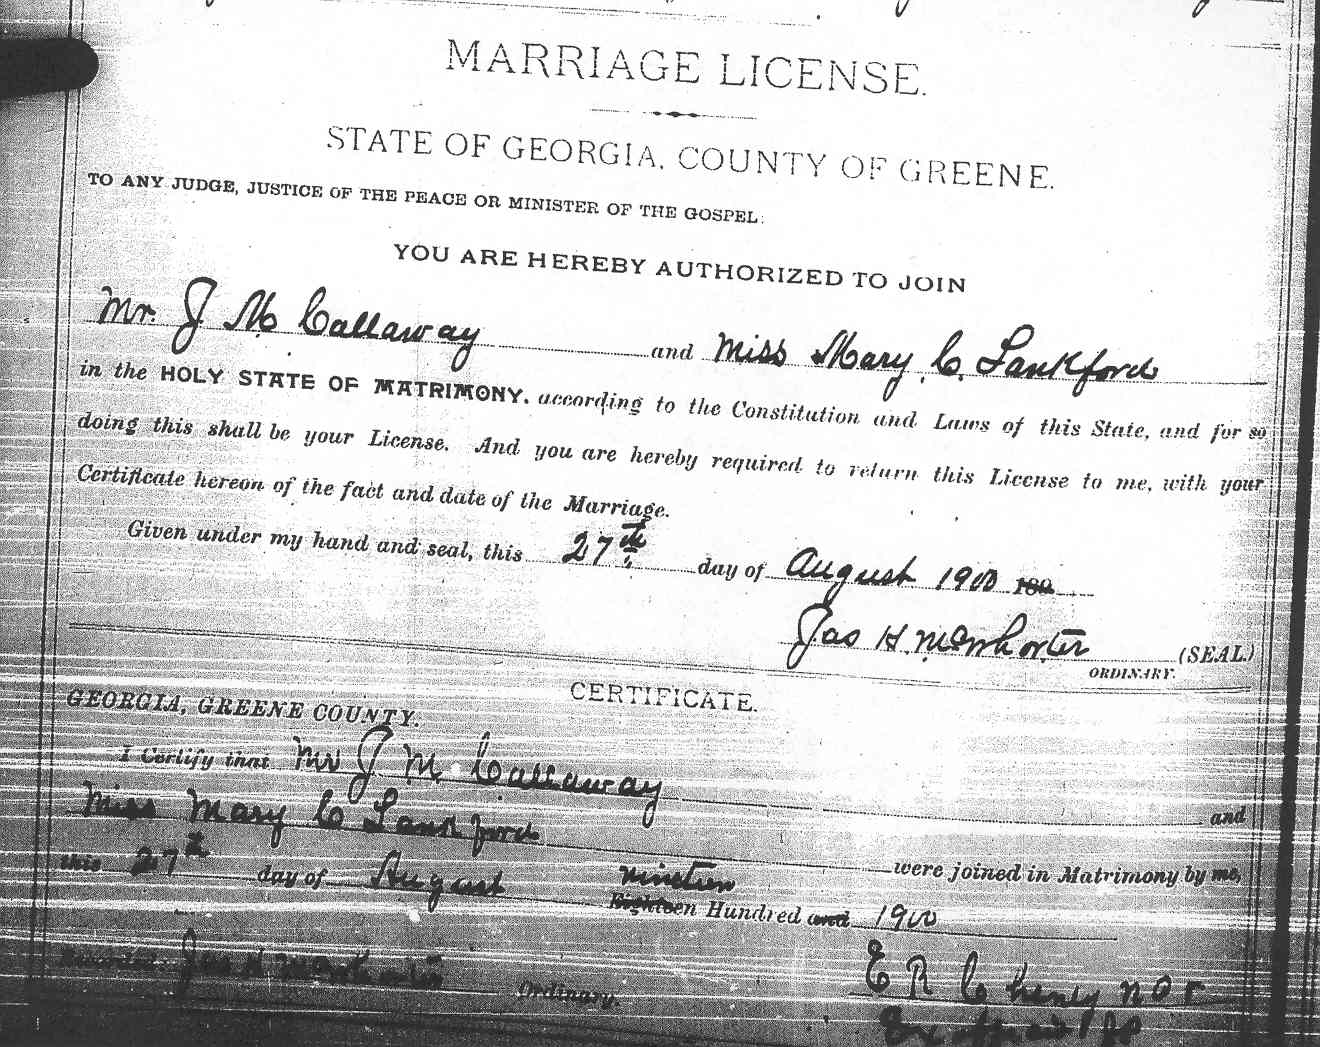 MARRIAGE LICENSE.
STATE OF GEORGIA, COUNTY OF GREENE.
TO ANY JUDGE, JUSTICE OF THE PEACE OR MINISTER OF THE GOSPEL:
YOU ARE HEREBY AUTHORIZED TO JOIN
Mr. J M Callaway and Miss Mary C. Lankford
in the HOLY STATE OF MATRIMONY, according to the Constitution and Laws of this State, and for so
doing this shall be your License. And you are hereby required to return this License to me, with your
Certificate hereon of the fact and date of the Marriage.
Given under my hand and seal, this 27th day of August 1900 189
Jas H. McWhorter (SEAL.)
ORDINARY.
CERTIFICATE.
GEORGIA, GREENE COUNTY.
I Certify that Mr J M Callaway and
Miss Mary C Lankford were joined in Matrimony by me,
this 27th day of August nineteen
Eighteen Hundred and 1900
Recorded Jas H McWhorter Ordinary.
E R Cheney N P
Ex officio J P